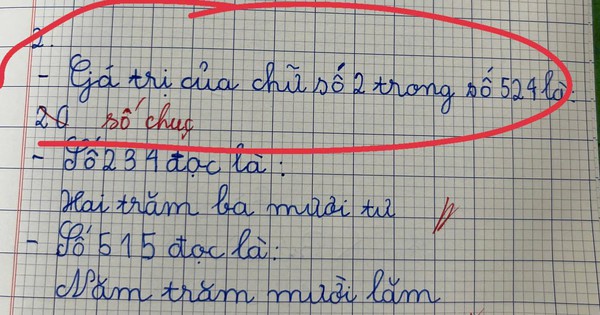 2.
- Giá trị của chữ số 2 trong số 524 là:
20 số chục
- Số 234 đọc là:
Hai trăm ba mươi tư
- Số 515 đọc là:
Năm trăm mười lăm